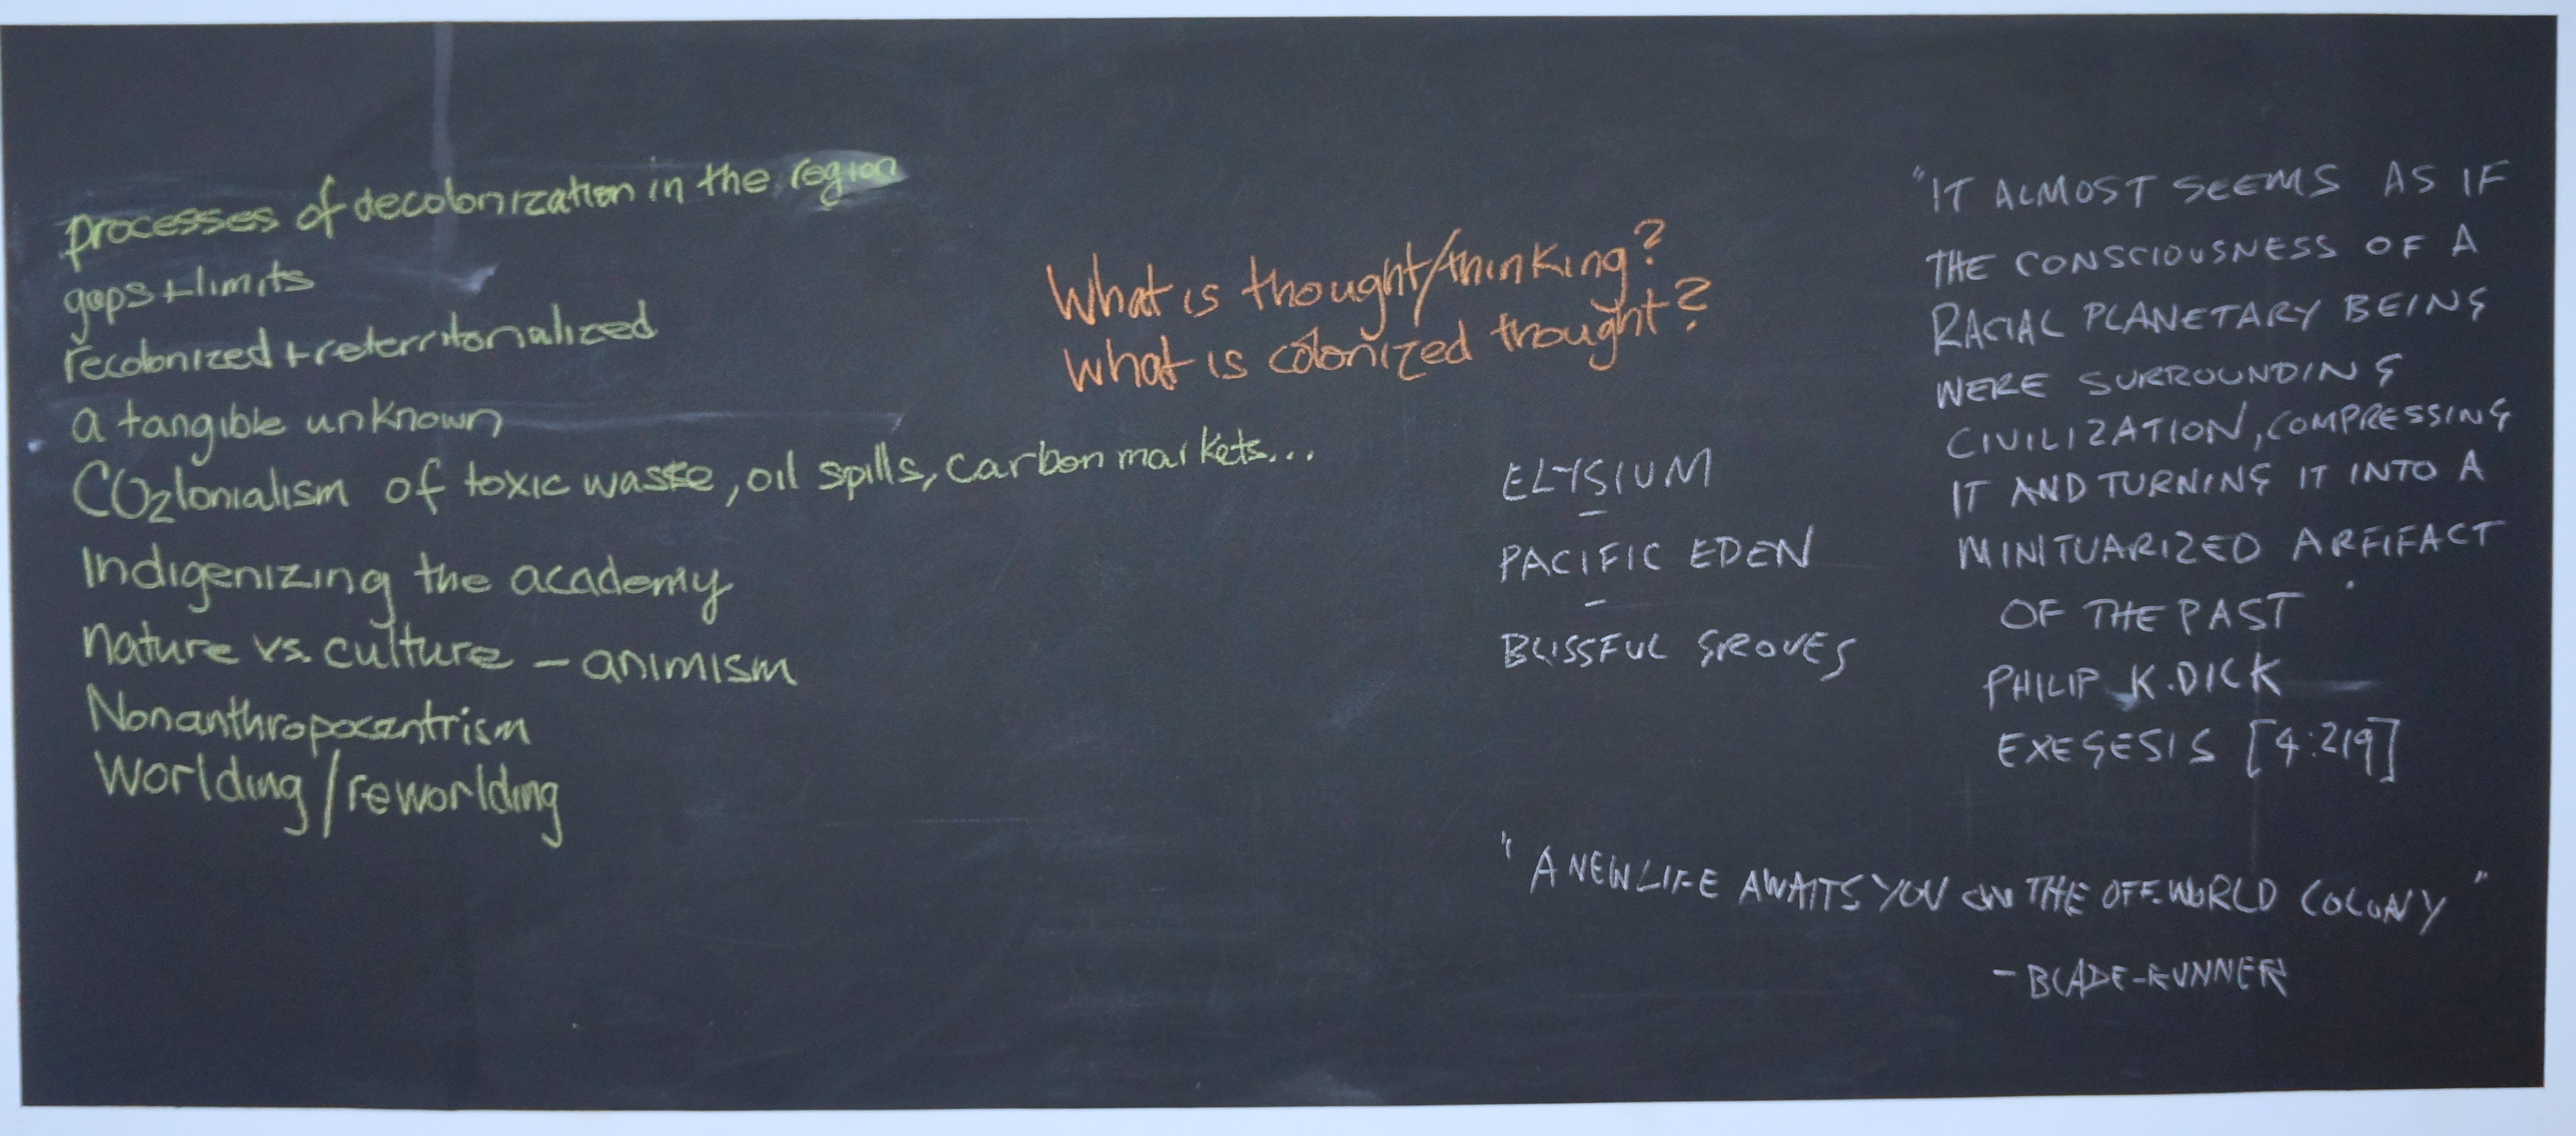 processes of decolonization in the region
gaps + limits
recolonized + reterritorialized
a tangible unknown
CO2lonialism of toxic waste, oil spills, carbon markets...
Indigenizing the academy
nature vs. culture – animism
Nonanthropocentrism
Worlding / reworlding
What is thought/thinking?
What is colonized thought?
ELYSIUM
–
PACIFIC EDEN
–
BLISSFUL GROVES
"IT ALMOST SEEMS AS IF
THE CONSCIOUSNESS OF A
RACIAL PLANETARY BEING
WERE SURROUNDING
CIVILIZATION, COMPRESSING
IT AND TURNING IT INTO A
MINITUARIZED ARFIFACT
OF THE PAST
PHILIP K. DICK
EXEGESIS [4:219]
"A NEW LIFE AWAITS YOU ON THE OFF-WORLD COLONY"
– BLADE-RUNNER